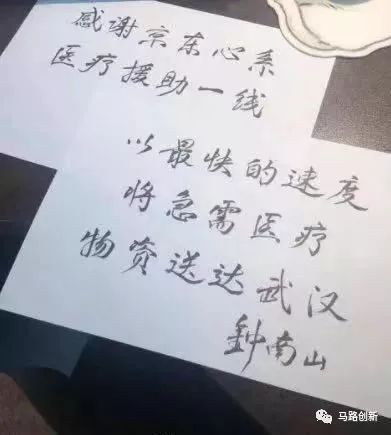 感谢京东心系
医疗援助一线
以最快的速度
将急需医疗
物资送达武汉
钟南山
马路创新